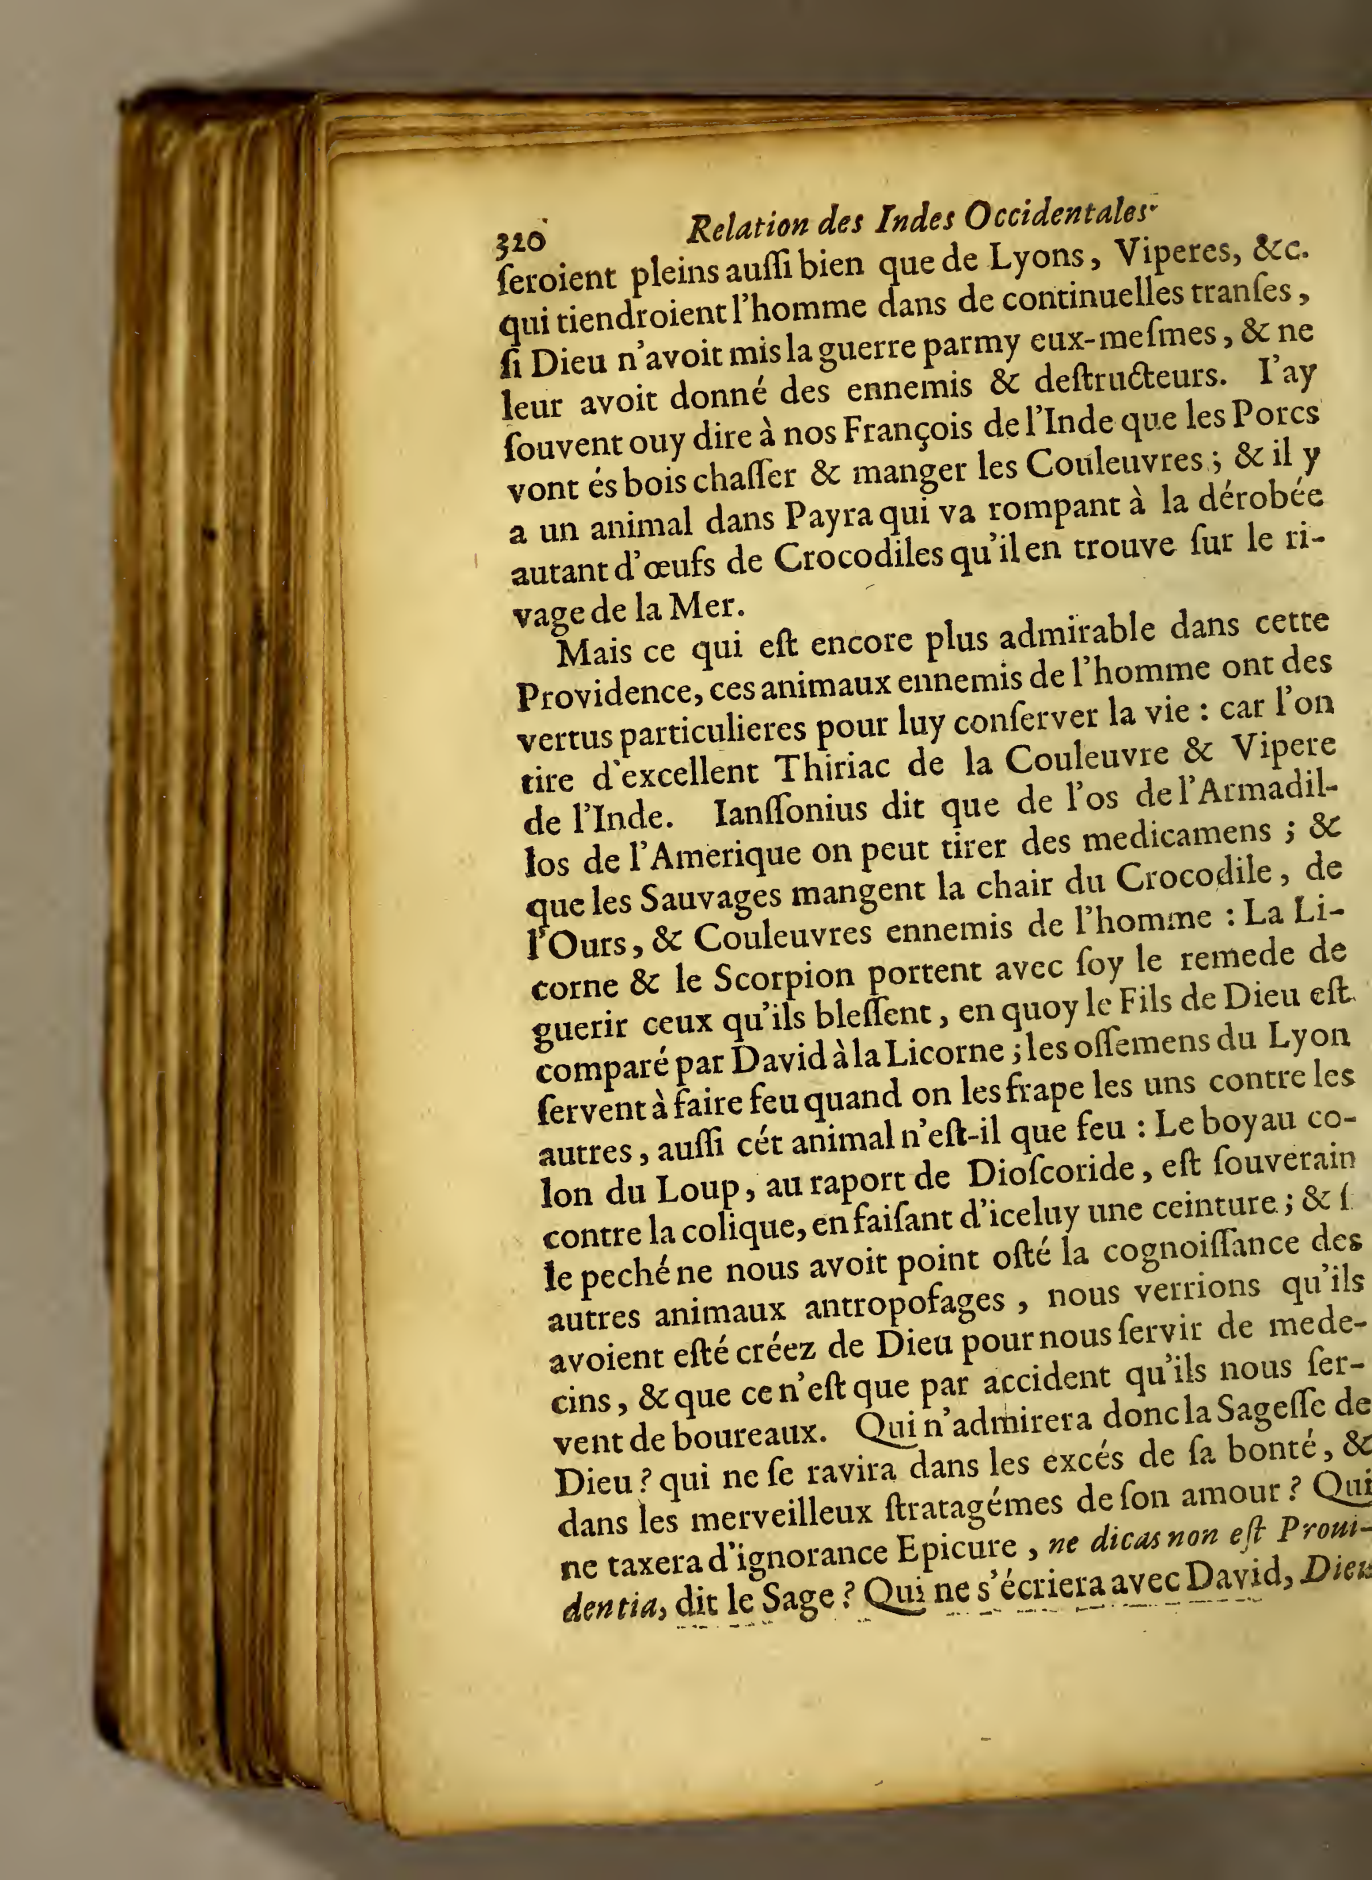 320 Relation des Indes Occidentales
ſeroient pleins auſſi bien que de Lyons, Viperes, &c.
qui tiendroient l'homme dans de continuelles tranſes,
ſi Dieu n'avoit mis la guerre parmy eux-meſmes, & ne
leur avoit donné des ennemis & deſtructeurs. I'ay
ſouvent ouy dire à nos François de l'Inde que les Porcs
vont és bois chaſſer & manger les Couleuvres; & il y
a un animal dans Payra qui va rompant à la dérobée
autant d'œufs de Crocodiles qu'il en trouve ſur le ri-
vage de la Mer.
Mais ce qui eſt encore plus admirable dans cette
Providence, ces animaux ennemis de l'homme ont des
vertus particulieres pour luy conſerver la vie : car l'on
tire d'excellent Thiriac de la Couleuvre & Vipere
de l'Inde. Ianſſonius dit que de l'os de l'Armadil-
los de l'Amerique on peut tirer des medicamens ; &
que les Sauvages mangent la chair du Crocodile, de
l'Ours, & Couleuvres ennemis de l'homme : La Li-
corne & le Scorpion portent avec ſoy le remede de
guerir ceux qu'ils bleſſent, en quoy le Fils de Dieu eſt
comparé par David à la Licorne ; les oſſemens du Lyon
ſervent à faire feu quand on les frape les uns contre les
autres, auſſi cét animal n'eſt-il que feu : Le boyau co-
lon du Loup, au raport de Dioſcoride, eſt ſouverain
contre la colique, en faiſant d'iceluy une ceinture ; & ſ
le peché ne nous avoit point oſté la cognoiſſance des
autres animaux antropofages, nous verrions qu'ils
avoient eſté créez de Dieu pour nous ſervir de mede-
cins, & que ce n'eſt que par accident qu'ils nous ſer-
vent de boureaux. Qui n'admirera donc la Sageſſe de
Dieu ? qui ne ſe ravira dans les excés de ſa bonté, &
dans les merveilleux ſtratagémes de ſon amour ? Qui
ne taxera d'ignorance Epicure, ne dicas non eſt Proui-
dentia, dit le Sage ? Qui ne s'écriera avec David, Dieu